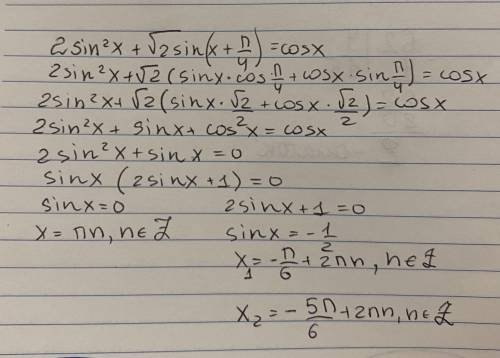 2sin²x + √2 sin(x + π/4) = cosx
2sin²x + √2 (sinx · cos π/4 + cosx · sin π/4) = cosx
2sin²x + √2 (sinx · √2 + cosx · √2/2) = cosx
2sin²x + sinx + cos²x = cosx
2sin²x + sinx = 0
sinx (2sinx + 1) = 0
sinx = 0 2sinx + 1 = 0
x = πn, n∈Z sinx = -1/2
x₁ = -π/6 + 2πn, n∈Z
x₂ = -5π/6 + 2πn, n∈Z